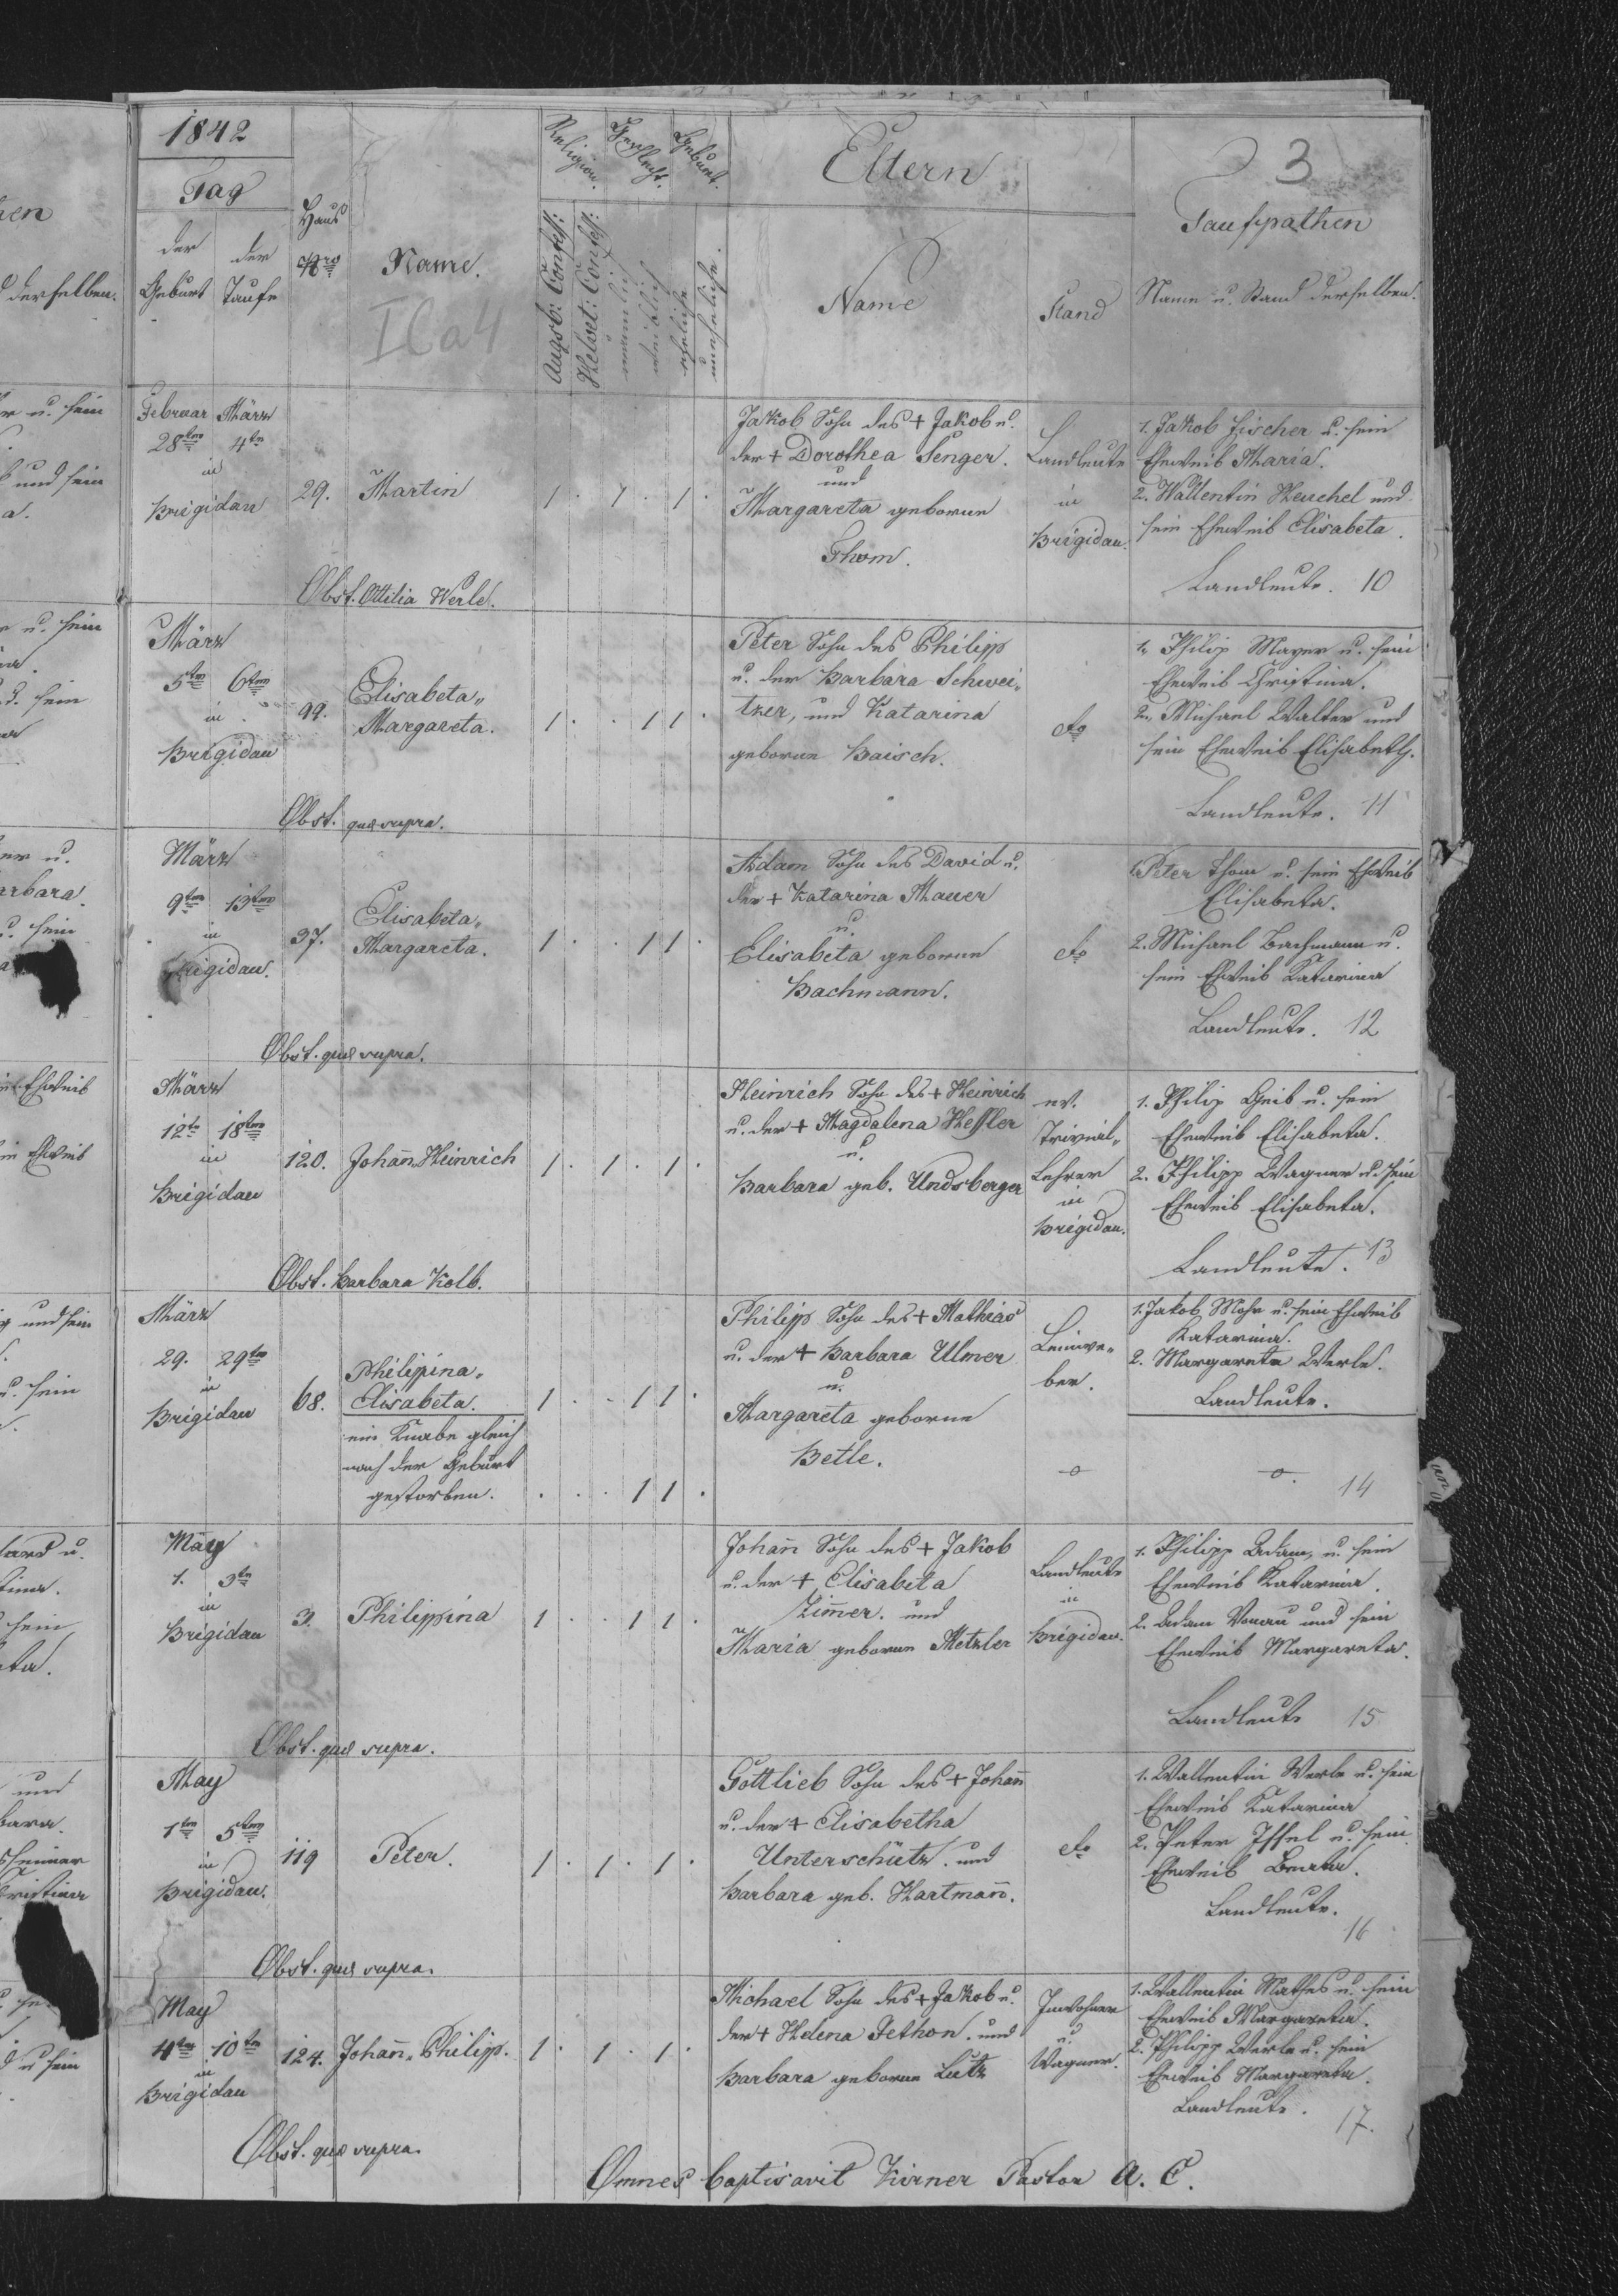 1842
Tag
der Geburt
der Taufe
Haus Nro
Name.
I C a 4
Religion.
Augsb: Confess:
Helvet: Confess:
Geschlecht.
männlich
weiblich
Geburt.
eheliche
uneheliche.
Eltern
Name
Stand
3
Taufpathen
Name u. Stand derselben.
Februar März
28ten 4ten
in
Brigidau
29.
Martin
1 . 1 . 1 .
Jakob Sohn des + Jakob u.
der + Dorothea Senger.
und
Margareta geborne
Thom.
Landleute
in
Brigidau.
1. Jakob Fischer u. sein
Eheweib Maria.
2. Wallentin Heuchel und
sein Eheweib Elisabeta.
Landleute. 10
Obst. Ottilia Werle.
März
5ten 6ten
in
Brigidau
99.
Elisabeta„
Margareta.
1 . . 1 1 .
Peter Sohn des Philipp
u. der Barbara Schwei„
tzer, und Katarina
geborne Baisch.
do
1. Philip Mayer u. sein
Eheweib Christina.
2. Michael Walter und
sein Eheweib Elisabeth.
Landleute. 11
Obst. quæ supra.
März
9ten 13ten
in
Brigidau.
37.
Elisabeta„
Margareta.
1 . . 1 1 .
Adam Sohn des David u.
der + Katarina Mauer
u.
Elisabeta geborne
Bachmann.
do
1. Peter Thom u. sein Eheweib
Elisabeta.
2. Michael Bachmann u.
sein Eheweib Katarina
Landleute. 12
Obst. quæ supra.
März
12ten 18ten
in
Brigidau
120.
Johan̄ Heinrich
1 . 1 . 1 .
Heinrich Sohn des + Heinrich
u. der + Magdalena Heßler
u.
Barbara geb. Undsberger
ev.
Trivial„
Lehrer
in
Brigidau.
1. Philip Geib u. sein
Eheweib Elisabeta.
2. Philipp Wagner u. sein
Eheweib Elisabeta.
Landleute. 13
Obst. Barbara Kolb.
März
29. 29ten
in
Brigidau
68.
Philippina„
Elisabeta.
1 . . 1 1 .
ein Knabe gleich
nach der Geburt
gestorben.
. . . 1 1 .
Philipp Sohn des + Mathias
u. der + Barbara Ulmer
u.
Margareta geborne
Betle.
Leinwe„
ber.
1. Jakob Mohr u. sein Eheweib
Katarina.
2. Margareta Werle.
Landleute.
14
May
1. 3ten
in
Brigidau
3.
Philippina
1 . . 1 1 .
Johan̄ Sohn des + Jakob
u. der + Elisabeta
Zim̄er. und
Maria geborne Metzler
Landleute
in
Brigidau.
1. Philipp Adam, u. sein
Eheweib Katarina.
2. Adam Vonau und sein
Eheweib Margareta.
Landleute 15
Obst. quæ supra.
May
1ten 5ten
in
Brigidau.
119
Peter.
1 . 1 . 1 .
Gottlieb Sohn des + Johan̄
u. der + Elisabetha
Unterschütz. und
Barbara geb. Hartman̄.
do
1. Wallentin Werle u. sein
Eheweib Katarina
2. Peter Issel u. sein
Eheweib Beata.
Landleute.
16
Obst. quæ supra.
May
4ten 10ten
in
Brigidau
124.
Johan̄„ Philipp.
1 . 1 . 1 .
Michael Sohn des + Jakob u.
der + Helena Fethon. und
Barbara geborne Lutz
Inwohner
u.
Wagner.
1. Wallentin Mathes u. sein
Eheweib Margareta.
2. Philipp Werle u. sein
Eheweib Margareta.
Landleute.
17.
Obst. quæ supra.
Omnes baptisavit Kirner Pastor A. C.